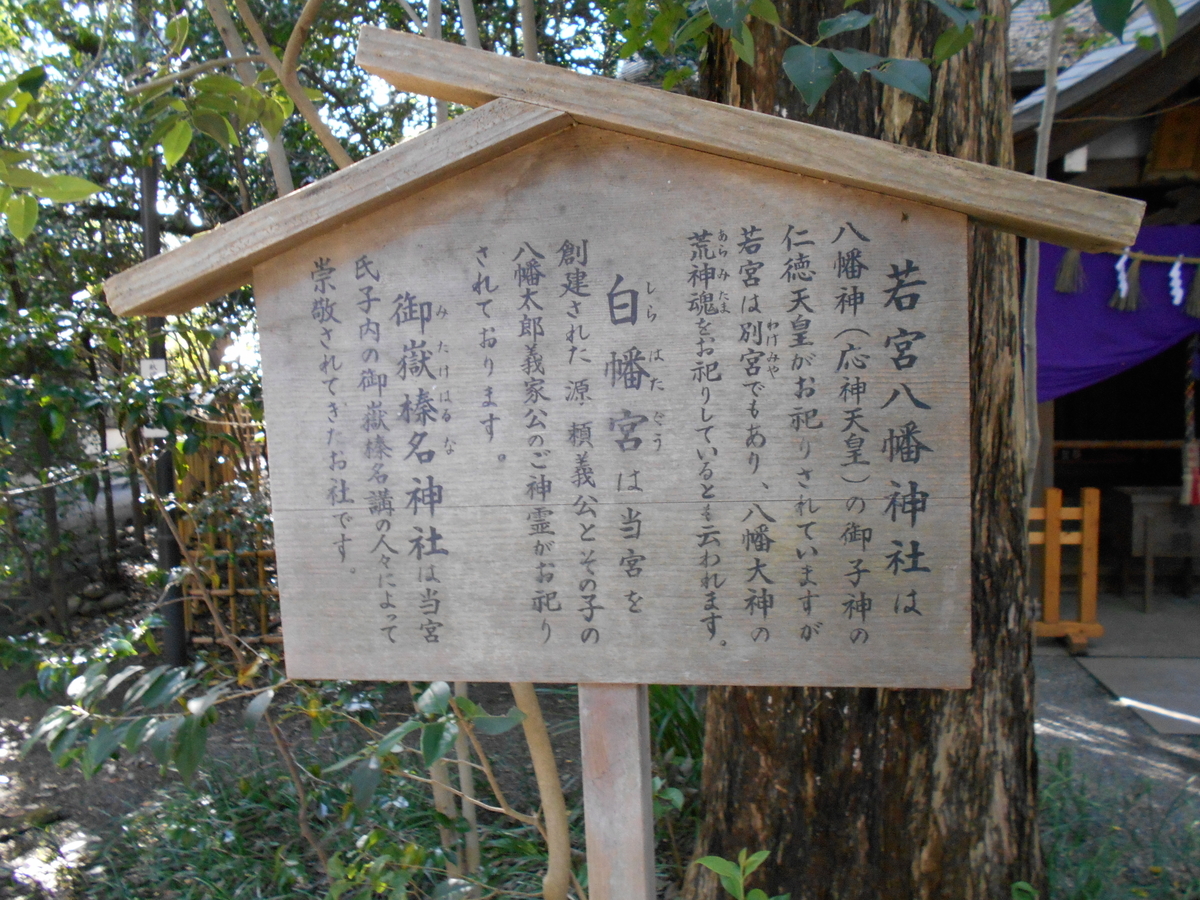 若宮八幡神社は
八幡神（応神天皇）の御子神の
仁徳天皇がお祀りされていますが
若宮は別宮でもあり、八幡大神の
荒神魂をお祀りしているとも云われます。
白幡宮は当宮を
創建された源頼義公とその子の
八幡太郎義家公のご神霊がお祀り
されております。
御嶽榛名神社は当宮
氏子内の御嶽榛名講の人々によって
崇敬されてきたお社です。
わけみや
あらみたま
しらはたぐう
みたけはるな